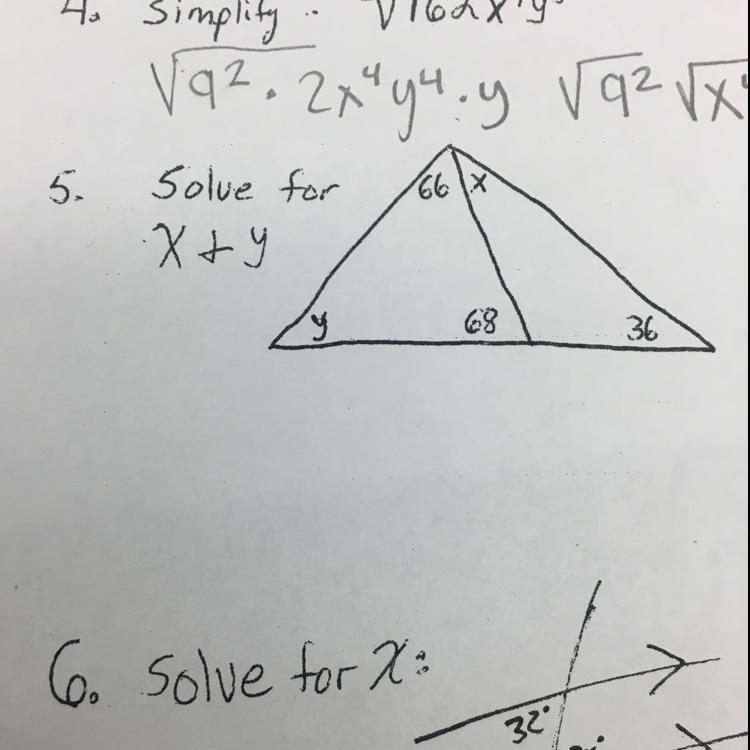 4. Simplify: √162x y
√9² · 2x⁴y⁴ · y √9² √x⁴
5. Solve for
x + y
66 x
y 68 36
6. Solve for x:
32°